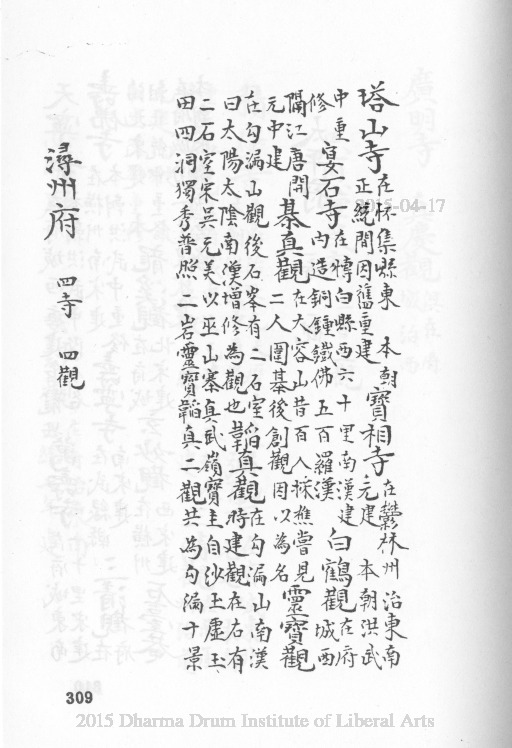 塔山寺 在怀集縣東 本朝正統間因舊重建 寶相寺 在鬱林州治東南元建 本朝洪武
中重修 宴石寺 在博白縣西六十里南漢建内造銅鍾鐵佛五百羅漢 白鶴觀 在府城西
隔江唐開元中建 綦真觀 在大容山昔百人採樵嘗見二人圍棊後創觀因以為名 靈寶觀
在勾漏山觀後石峯有二石室曰太陽太陰南漢增修為觀也 韜真觀 在勾漏山南漢時建觀在右有
二石室宋吳元美以巫山寨真武嶺寶圭白沙玉虛玉
田四洞獨秀普照二岩靈寶韜真二觀共為勾漏十景
潯州府 四寺 四觀
309
2015-04-17
2015 Dharma Drum Institute of Liberal Arts